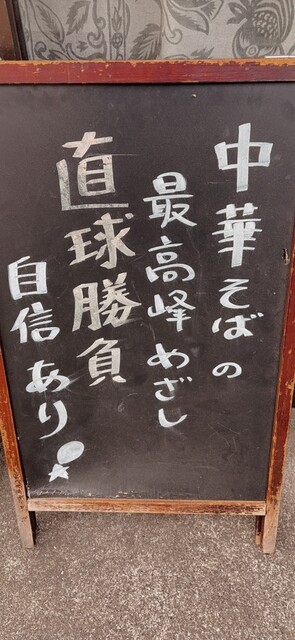 中華そばの
最高峰めざし
直球勝負
自信あり!